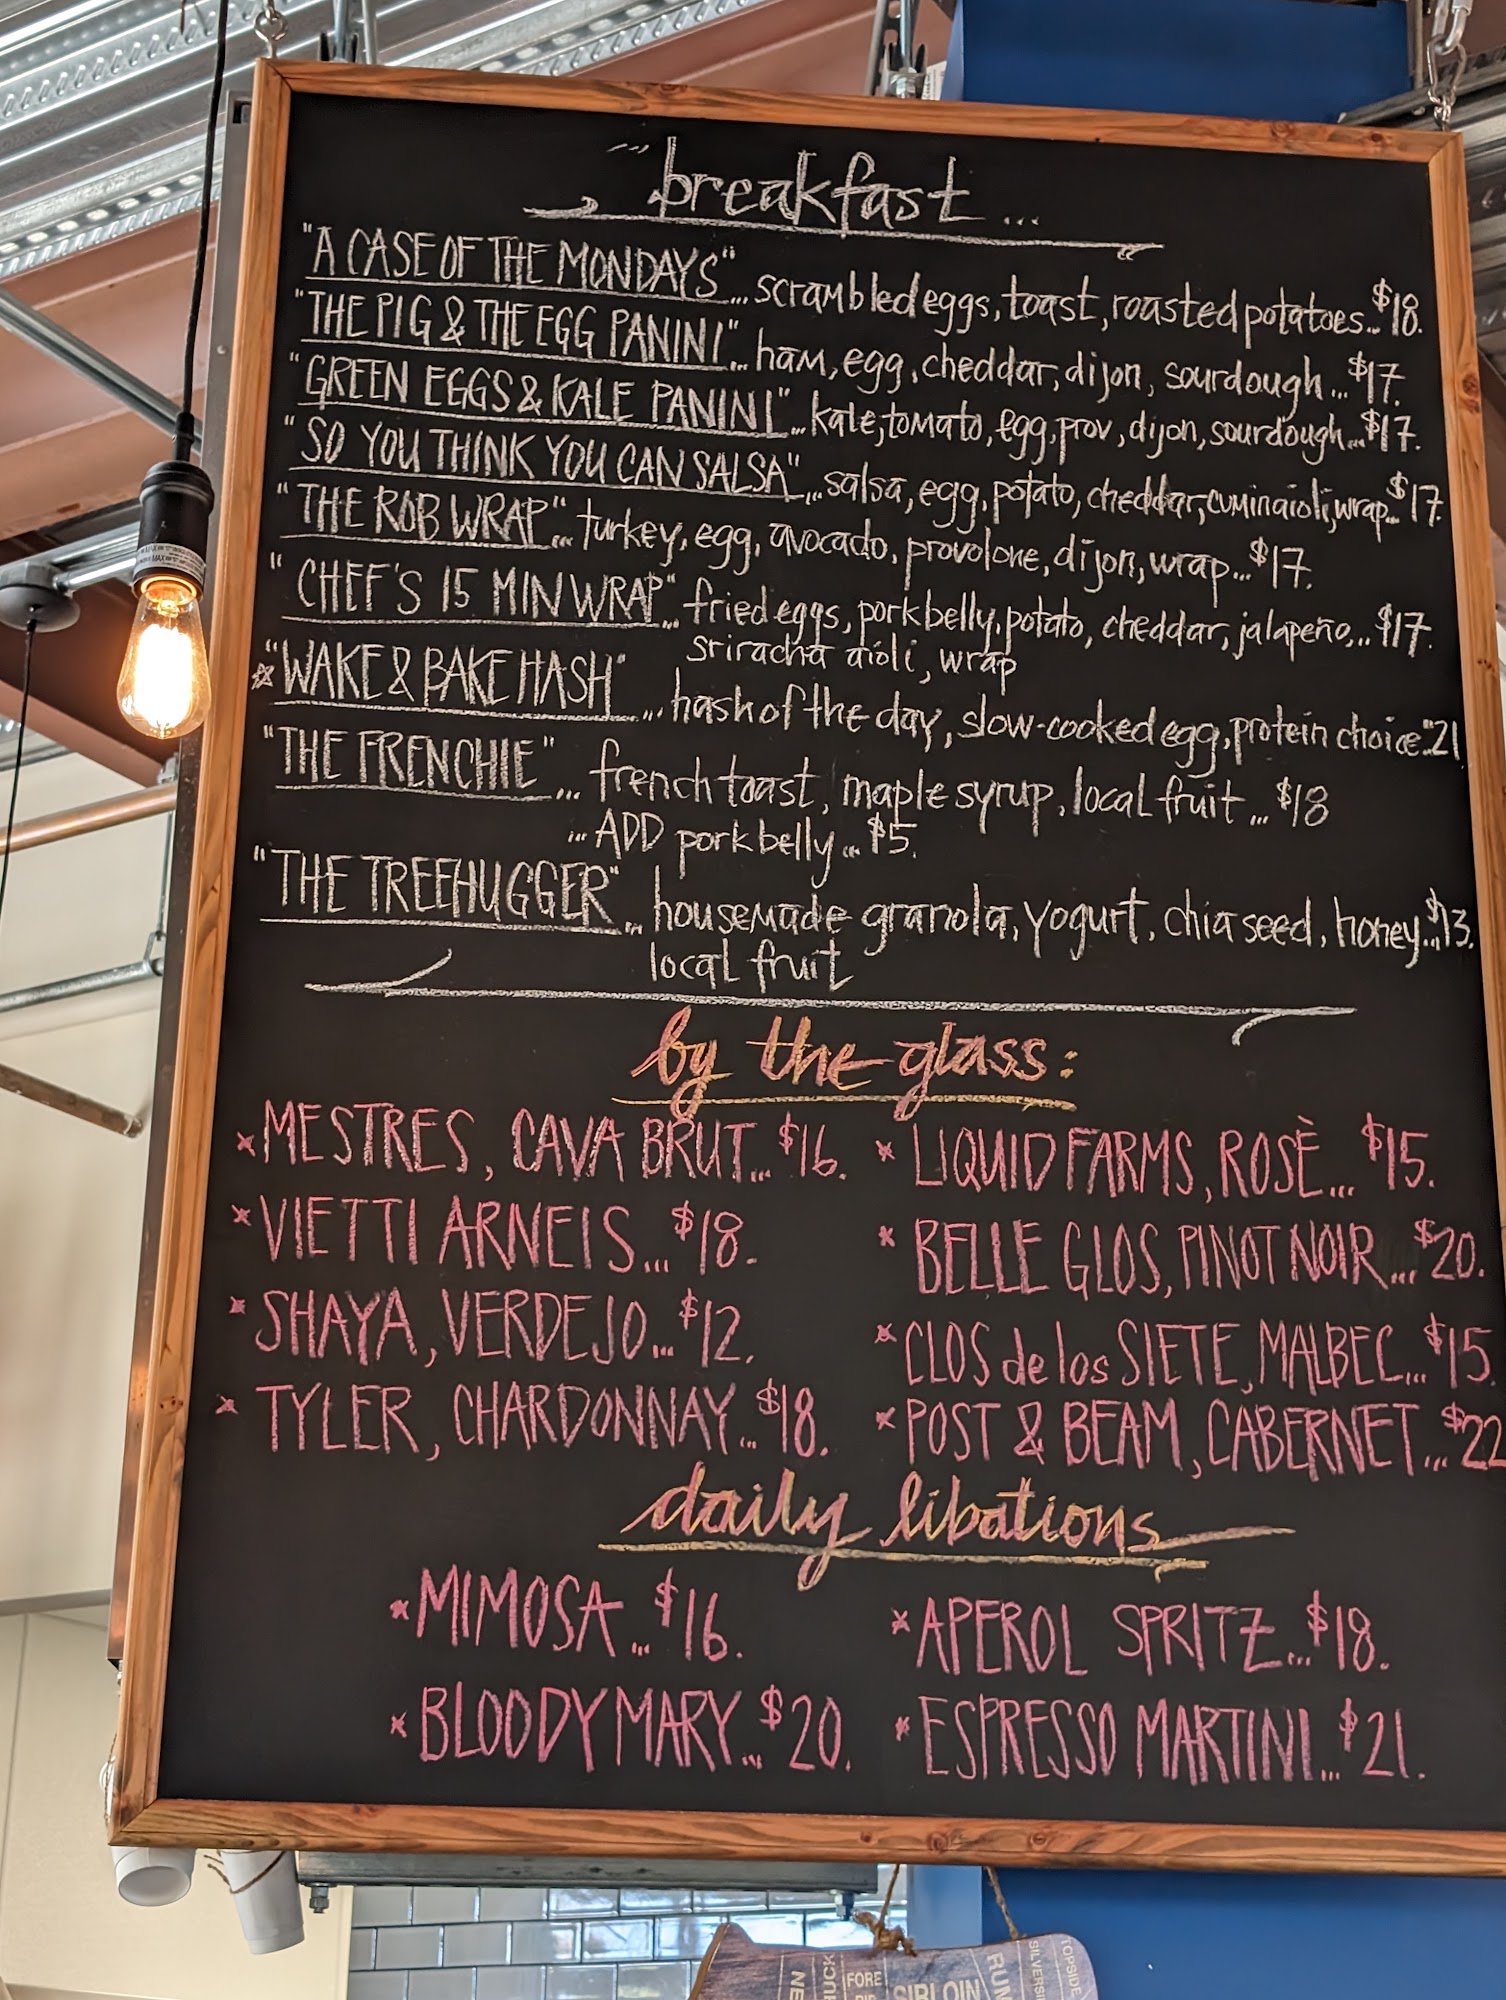 breakfast...
"A CASE OF THE MONDAYS"... scrambled eggs, toast, roasted potatoes...$18.
"THE PIG & THE EGG PANINI"... ham, egg, cheddar, dijon, sourdough...$17.
"GREEN EGGS & KALE PANINI"... kale, tomato, egg, prov, dijon, sourdough...$17.
"SO YOU THINK YOU CAN SALSA"... salsa, egg, potato, cheddar, cumin aioli, wrap...$17.
"THE ROB WRAP"... turkey, egg, avocado, provolone, dijon, wrap...$17.
"CHEF'S 15 MIN WRAP"... fried eggs, pork belly, potato, cheddar, jalapeño,...$17.
sriracha aioli, wrap
"WAKE & BAKE HASH"... hash of the day, slow-cooked egg, protein choice..21
"THE FRENCHIE"... french toast, maple syrup, local fruit...$18
...ADD pork belly...$5.
"THE TREEHUGGER"... housemade granola, yogurt, chia seed, honey...$13.
local fruit
by the glass:
*MESTRES, CAVA BRUT...$16.
*LIQUID FARMS, ROSÈ...$15.
*VIETTI ARNEIS...$18.
*BELLE GLOS, PINOT NOIR...$20.
*SHAYA, VERDEJO...$12.
*CLOS de los SIETE, MALBEC...$15.
*TYLER, CHARDONNAY...$18.
*POST & BEAM, CABERNET...$22
daily libations
*MIMOSA...$16.
*APEROL SPRITZ...$18.
*BLOODY MARY...$20.
*ESPRESSO MARTINI...$21.
FORE
SIRLOIN
TOPSIDE